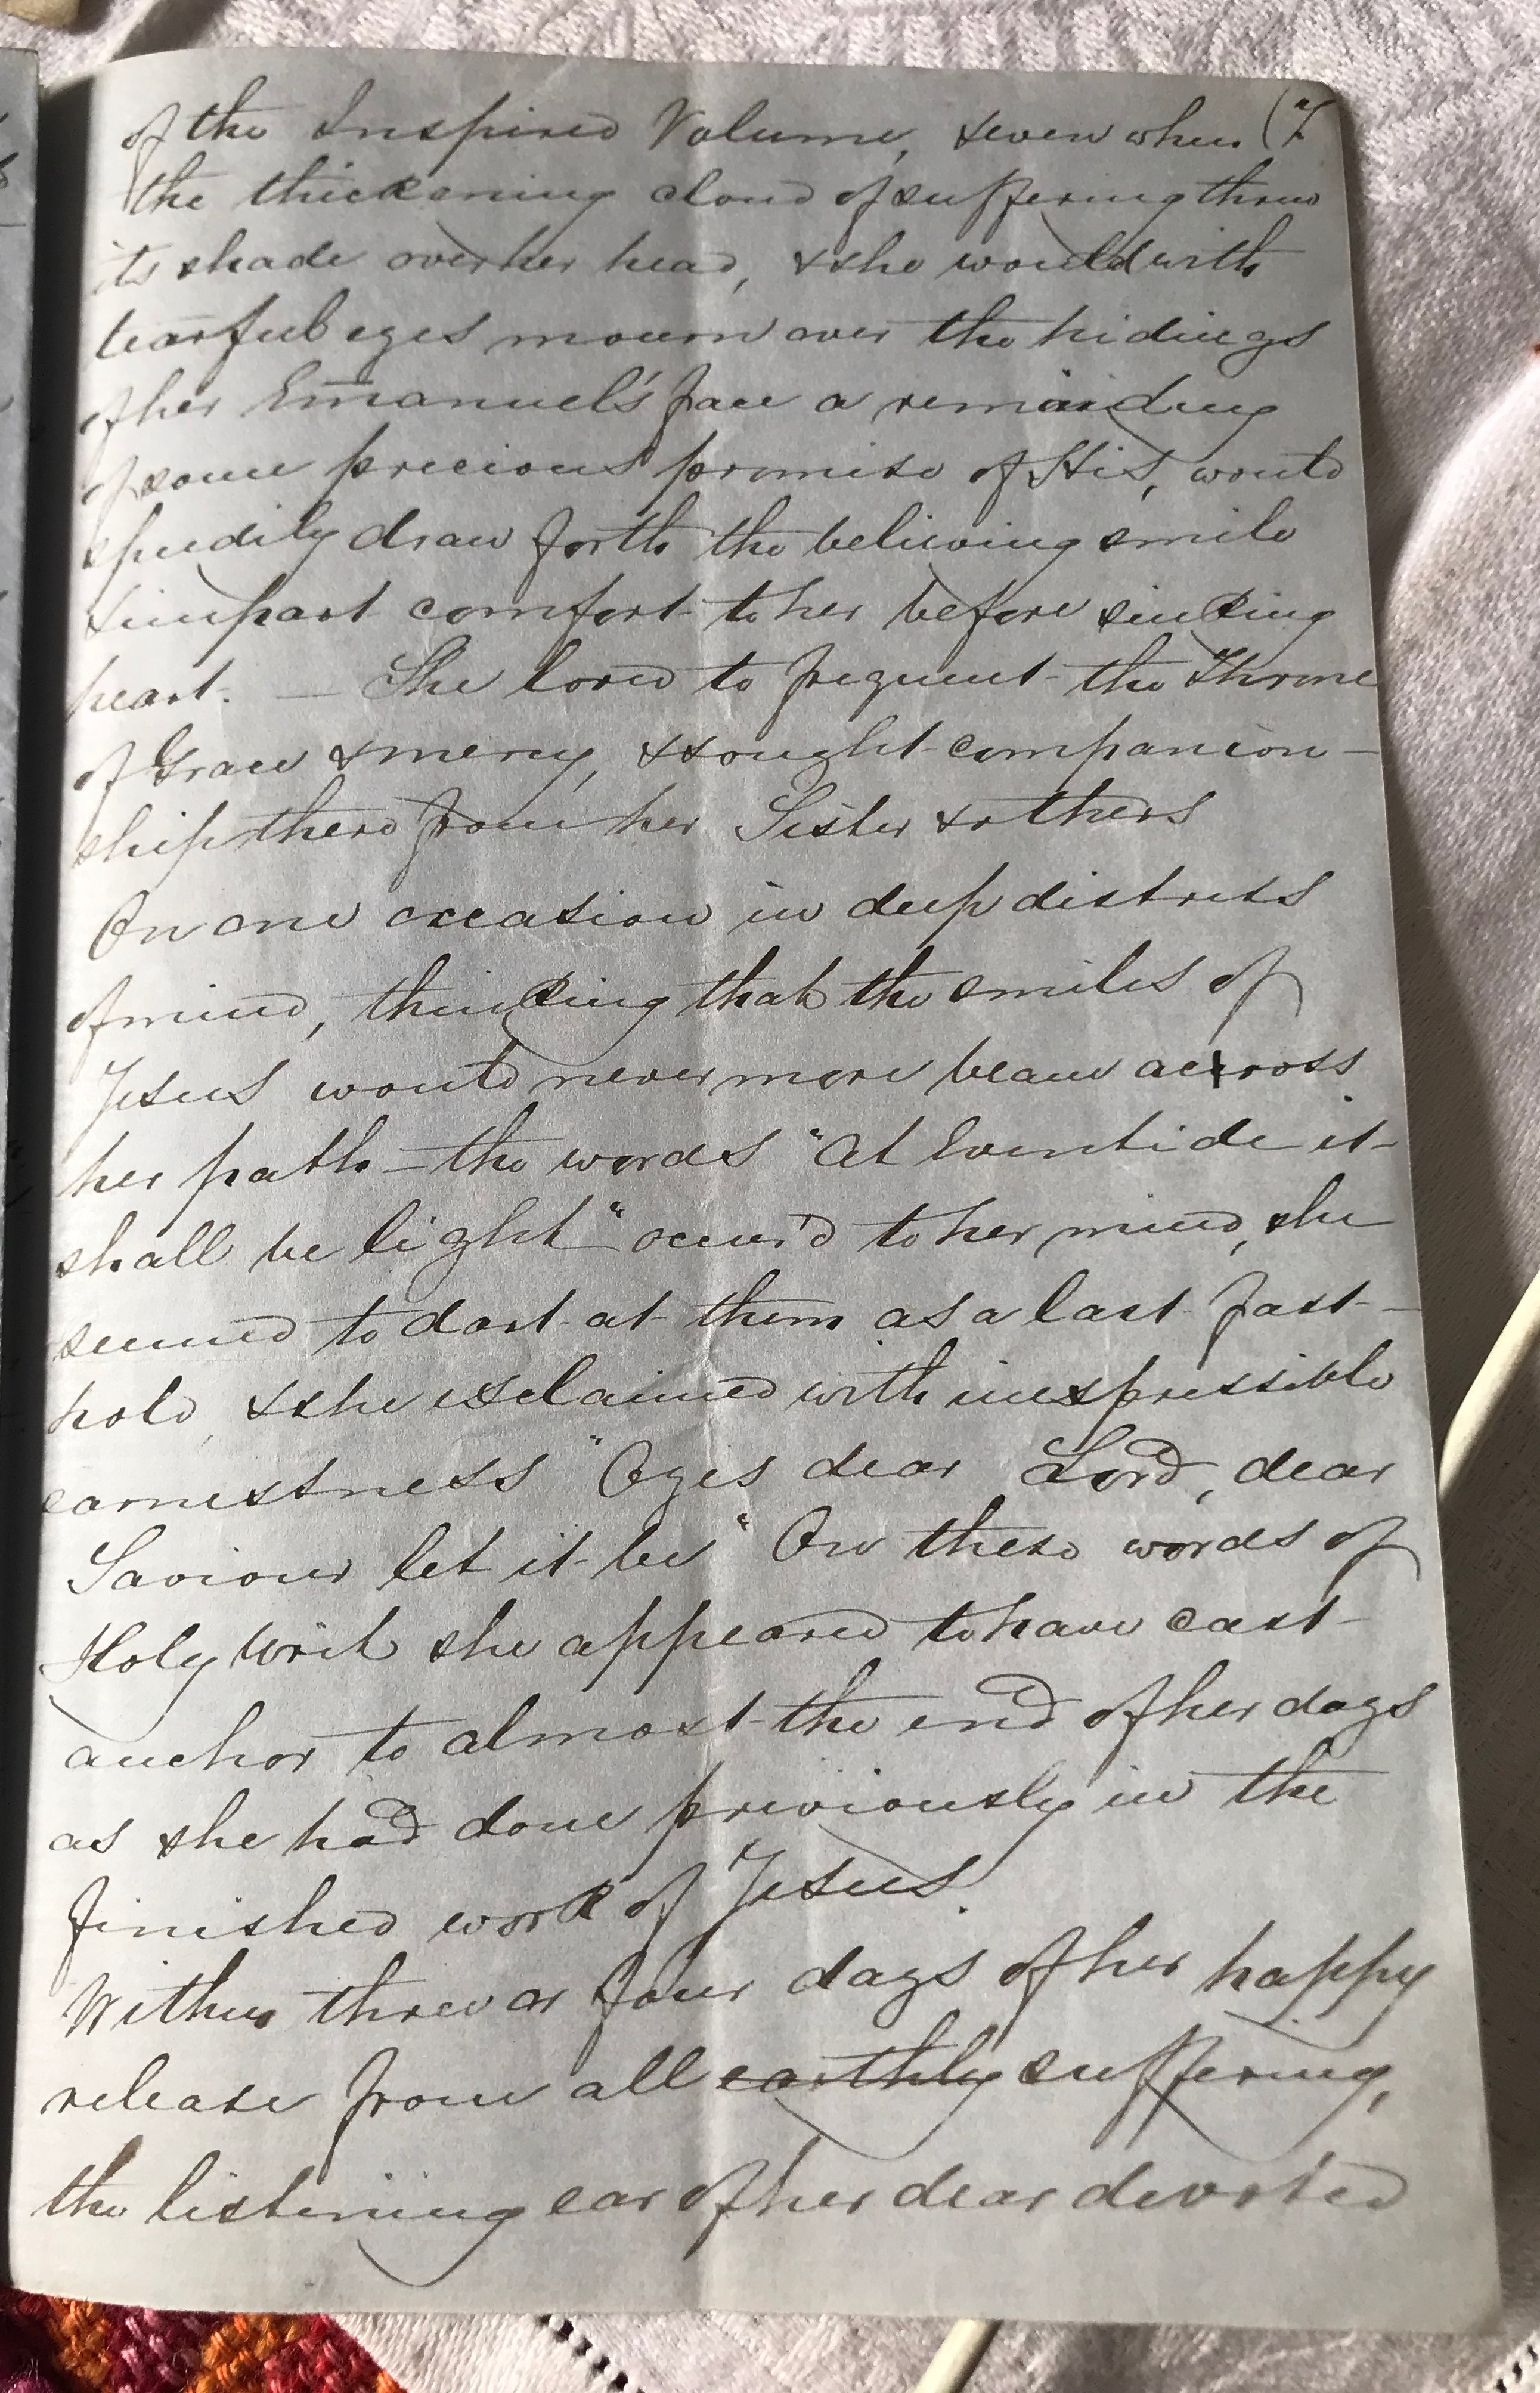 of the Inspired Volume, & even when (7
the thickening cloud of suffering threw
its shade over her head, & she would with
tearful eyes mourn over the hidings
of her Emanuel's face a reminding
of some precious promise of His, would
speedily draw forth the believing smile
& impart comfort to her before sinking
heart. — She loved to frequent the Throne
of Grace & mercy, & sought companion-
ship there from her Sister & others
On one occasion in deep distress
of mind, thinking that the smiles of
Jesus would never more beam across
her path – the words "At Eventide it
shall be light" occur'd to her mind, she
seemed to dart at them as a last fast-
hold, & she exclaimed with inexpressible
earnestness "O yes dear Lord, dear
Saviour let it be" On these words of
Holy Writ she appeared to have cast
anchor to almost the end of her days
as she had done previously in the
finished work of Jesus.
Within three or four days of her happy
release from all earthly suffering,
the listening ear of her dear devoted